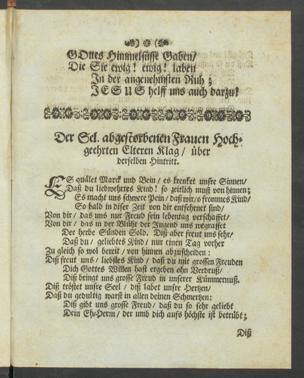 GOttes Himmelsüsse Gaben/
Die Sie ewig! ewig! laben
In der angenehmsten Ruh;
JESUS helff uns auch darzu!
Der Sel. abgestorbenen Frauen Hoch-
geehrten Elteren Klag / über
derselben Hintritt.
ES quälet Marck und Bein / es krencket unsre Sinnen/
Daß du liebwehrtes Kind! so zeitlich must von hinnen;
Es macht uns schwere Pein / daß wir / o frommes Kind/
So bald in diser Zeit von dir entfehrnet sind/
Von dir / das uns nur Freud sein lebentag verschaffet/
Von dir / das in der Blüht der Jugend uns wegraffet
Der herbe Sünden Sold. Diß aber freut uns sehr/
Daß du / geliebtes Kind / nur einen Tag vorher
Zu gleich so wol bereit / von hinnen abzuscheiden:
Diß freut uns / liebstes Kind / daß du mit grossen Freuden
Dich Gottes Willen hast ergeben ohn Verdruß/
Diß bringt uns grosse Freud in unserer Kümmernuß.
Diß tröstet unsre Seel / diß labet unsre Hertzen/
Daß du gedultig warst in allen deinen Schmertzen:
Diß gibt uns grosse Freud / daß du so sehr geliebt
Dein Eh-Herrn / der umb dich aufs höchste ist betrübt;
Diß